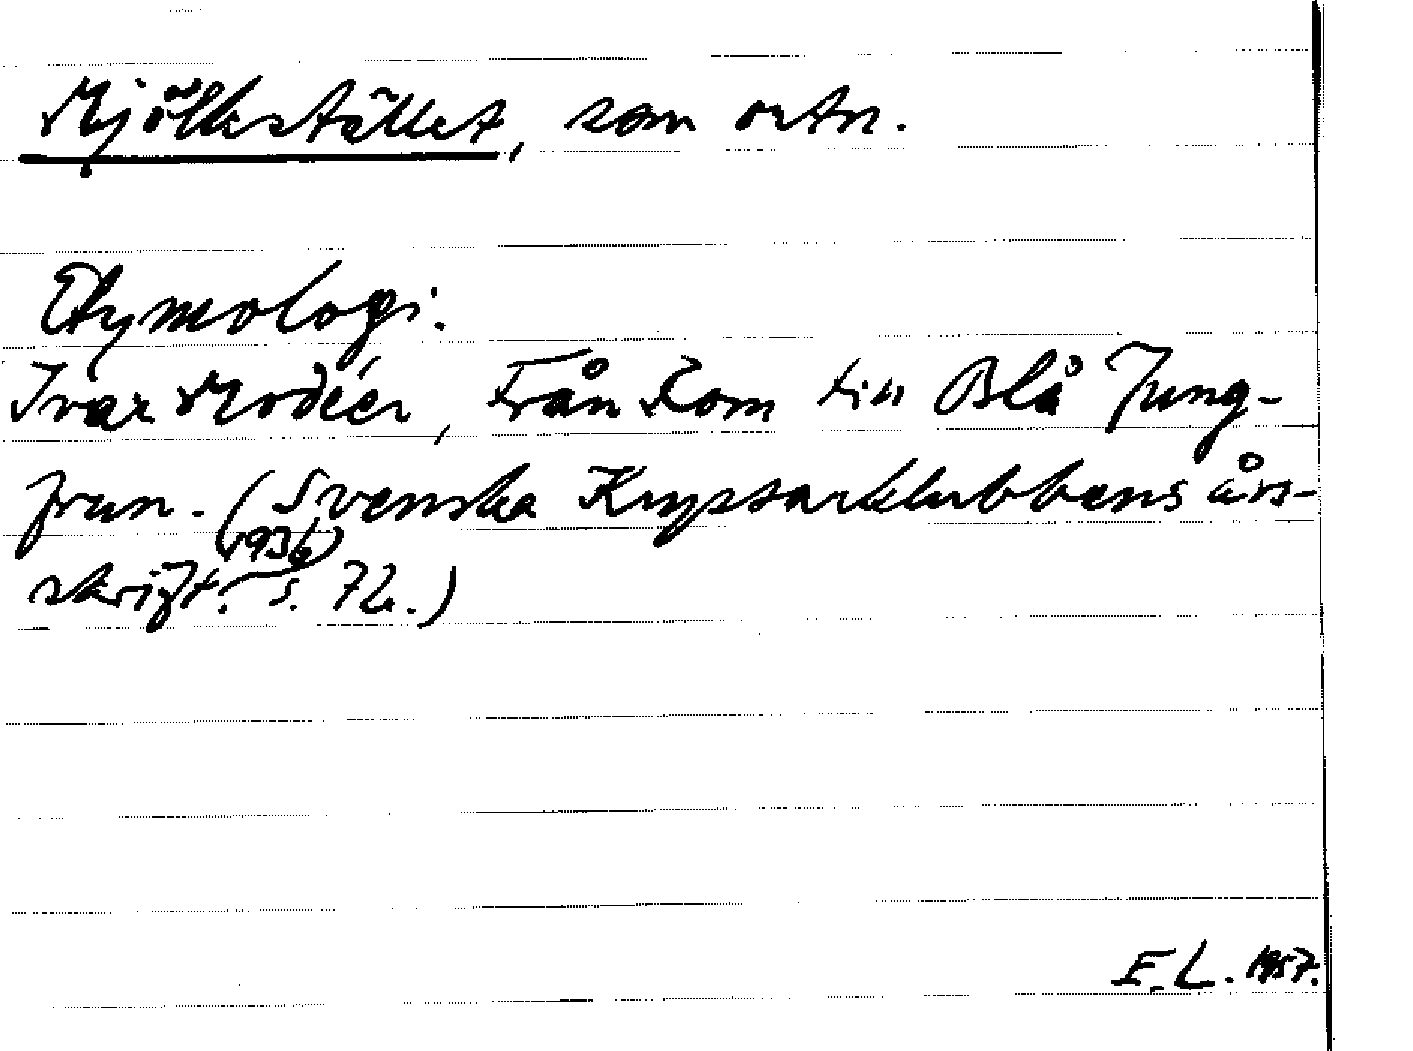 Mjölkstället, som ortn.
Etymologi.
Ivar Modéer, Från Kom till Blå Jung-
frun. (Svenska Kryssarklubbens års-
skrift. (1936) s. 72.)
E.L. 1957.